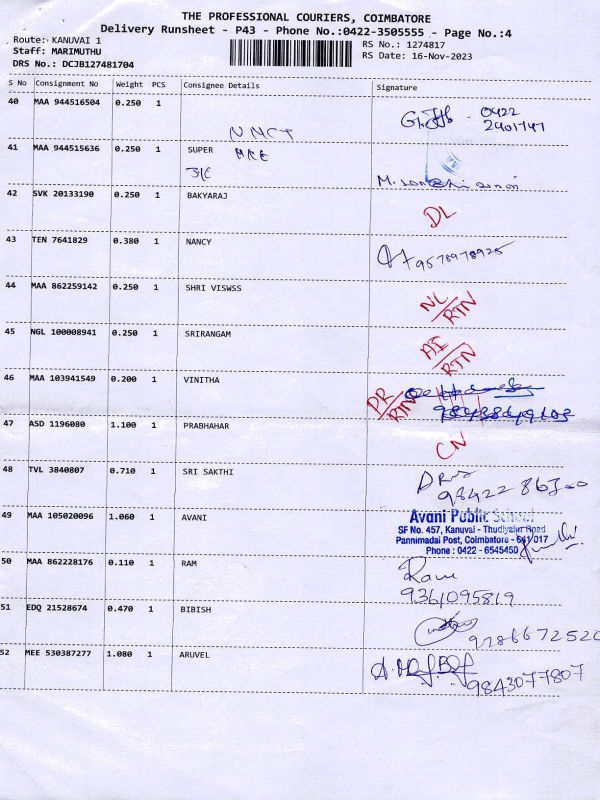 THE PROFESSIONAL COURIERS, COIMBATORE
Delivery Runsheet - P43 - Phone No.:0422-3505555 - Page No.:4
Route: KANUVAI 1
RS No.: 1274817
Staff: MARIMUTHU
RS Date: 16-Nov-2023
DRS No.: DCJB127481704
S No Consignment No Weight PCS Consignee Details Signature
40 MAA 944516504 0.250 1 0422
2401747
NNCT
41 MAA 944515636 0.250 1 SUPER
42 SVK 20133190 0.250 1 BAKYARAJ
DL
43 TEN 7641829 0.380 1 NANCY
9578978925
44 MAA 862259142 0.250 1 SHRI VISWSS
NL/RTN
45 NGL 100008941 0.250 1 SRIRANGAM
AI/RTN
46 MAA 103941549 0.200 1 VINITHA
DR/RTN
47 ASD 1196080 1.100 1 PRABHAHAR
CN
48 TVL 3840807 0.710 1 SRI SAKTHI
49 MAA 105020096 1.060 1 AVANI
Avani Public School
SF No. 457, Kanuvai - Thudiyalur Road
Pannimadai Post, Coimbatore - 641 017
Phone : 0422 - 6545450
50 MAA 862228176 0.110 1 RAM
Ram
9361095819
51 EDQ 21528674 0.470 1 BIBISH
9286672520
52 MEE 530387277 1.080 1 ARUVEL
9843077807